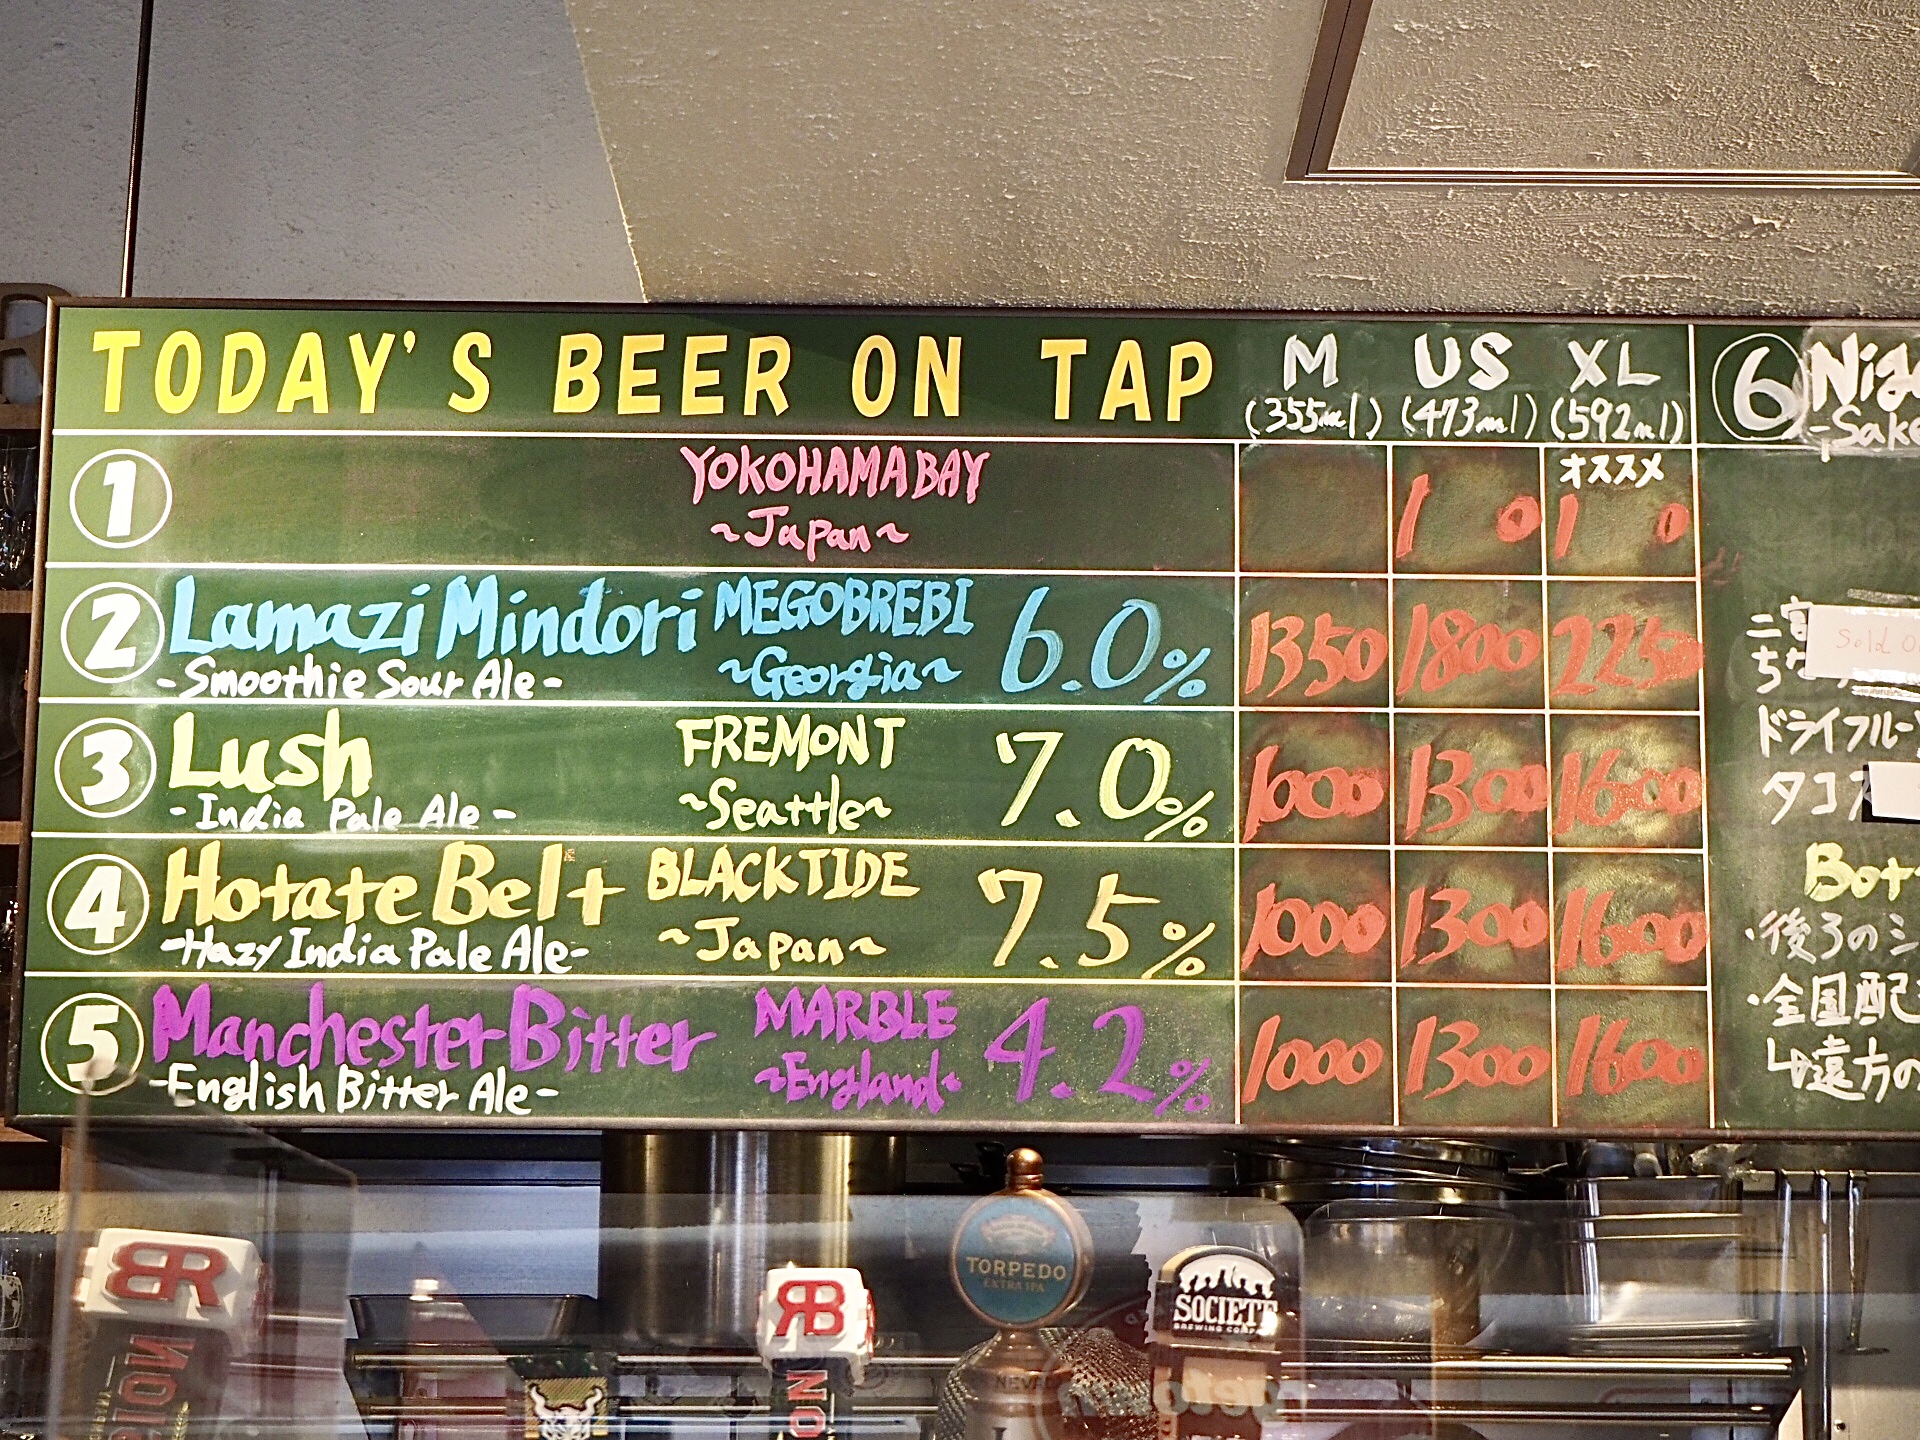 TODAY'S BEER ON TAP
M US XL
(355ml) (473ml) (592ml)
① YOKOHAMA BAY
~Japan~
オススメ
1 0 1 0
② Lamazi Mindori MEGOBREBI 6.0% 1350 1800 2250
-Smoothie Sour Ale- ~Georgia~
③ Lush FREMONT 7.0% 1000 1300 1600
-India Pale Ale- ~Seattle~
④ Hotate Belt BLACKTIDE 7.5% 1000 1300 1600
-Hazy India Pale Ale- ~Japan~
⑤ Manchester Bitter MARBLE 4.2% 1000 1300 1600
-English Bitter Ale- ~England~
⑥
-Sake
Sold
ドライフルー
タコス
・後ろのシ
・全国配
↳遠方の
TORPEDO
EXTRA IPA
SOCIETE
BREWING COMPANY
RB